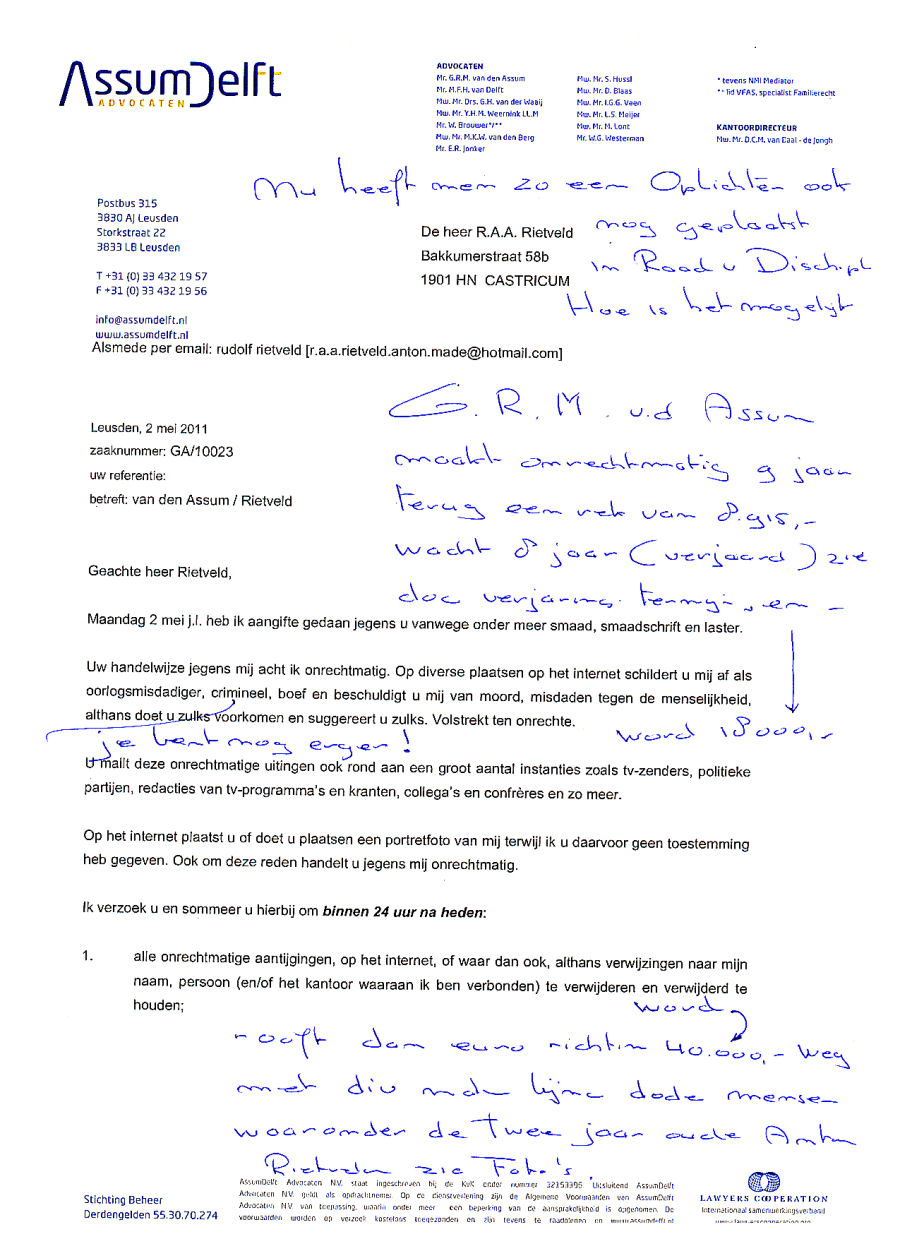 AssumDelft
ADVOCATEN
ADVOCATEN
Mr. G.R.M. van den Assum
Mr. M.F.H. van Delft
Mw. Mr. Drs. G.H. van der Waaij
Mw. Mr. Y.H.M. Weernink LL.M
Mr. W. Brouwer*/**
Mw. Mr. M.K.W. van den Berg
Mr. E.R. Jonker
Mw. Mr. S. Hussl
Mw. Mr. D. Blaas
Mw. Mr. I.G.G. Vaen
Mw. Mr. L.S. Meijer
Mw. Mr. M. Lont
Mr. W.G. Westerman
* tevens NMI Mediator
** lid VFAS, specialist Familierecht
KANTOORDIRECTEUR
Mw. Mr. D.C.M. van Daal - de Jongh
Nu heeft men zo een Oplichter ook
nog geplaatst
in Raad v Dischipl
Hoe is het mogelijk
Postbus 315
3830 AJ Leusden
Storkstraat 22
3833 LB Leusden
T +31 (0) 33 432 19 57
F +31 (0) 33 432 19 56
info@assumdelft.nl
www.assumdelft.nl
De heer R.A.A. Rietveld
Bakkumerstraat 58b
1901 HN CASTRICUM
Alsmede per email: rudolf rietveld [r.a.a.rietveld.anton.made@hotmail.com]
G. R. M. v.d Assum
maakt onrechtmatig 9 jaar
terug een rek van 8.915,-
wacht 8 jaar (verjaard) zie
doc verjarings termijn, en -
word 18000,-
Leusden, 2 mei 2011
zaaknummer: GA/10023
uw referentie:
betreft: van den Assum / Rietveld
Geachte heer Rietveld,
Maandag 2 mei j.l. heb ik aangifte gedaan jegens u vanwege onder meer smaad, smaadschrift en laster.
Uw handelwijze jegens mij acht ik onrechtmatig. Op diverse plaatsen op het internet schildert u mij af als
oorlogsmisdadiger, crimineel, boef en beschuldigt u mij van moord, misdaden tegen de menselijkheid,
althans doet u zulks voorkomen en suggereert u zulks. Volstrekt ten onrechte.
je bent nog erger!
U mailt deze onrechtmatige uitingen ook rond aan een groot aantal instanties zoals tv-zenders, politieke
partijen, redacties van tv-programma's en kranten, collega's en confrères en zo meer.
Op het internet plaatst u of doet u plaatsen een portretfoto van mij terwijl ik u daarvoor geen toestemming
heb gegeven. Ook om deze reden handelt u jegens mij onrechtmatig.
Ik verzoek u en sommeer u hierbij om binnen 24 uur na heden:
1. alle onrechtmatige aantijgingen, op het internet, of waar dan ook, althans verwijzingen naar mijn
naam, persoon (en/of het kantoor waaraan ik ben verbonden) te verwijderen en verwijderd te
houden;
word
rooft dan euro richtin 40.000,- weg
met div dode mense-
waaronder de Twee jaar oude Anton
zie Foto's
Stichting Beheer
Derdengelden 55.30.70.274
AssumDelft Advocaten N.V. staat ingeschreven bij de KvK onder nummer 32153995. Uitsluitend AssumDelft
Advocaten N.V. geldt als opdrachtnemer. Op de dienstverlening zijn de Algemene Voorwaarden van AssumDelft
Advocaten N.V. van toepassing, waarin onder meer een beperking van de aansprakelijkheid is opgenomen. De
voorwaarden worden op verzoek kosteloos toegezonden en zijn tevens te raadplegen op www.assumdelft.nl
LAWYERS COOPERATION
Internationaal samenwerkingsverband
www.lawyerscooperation.org